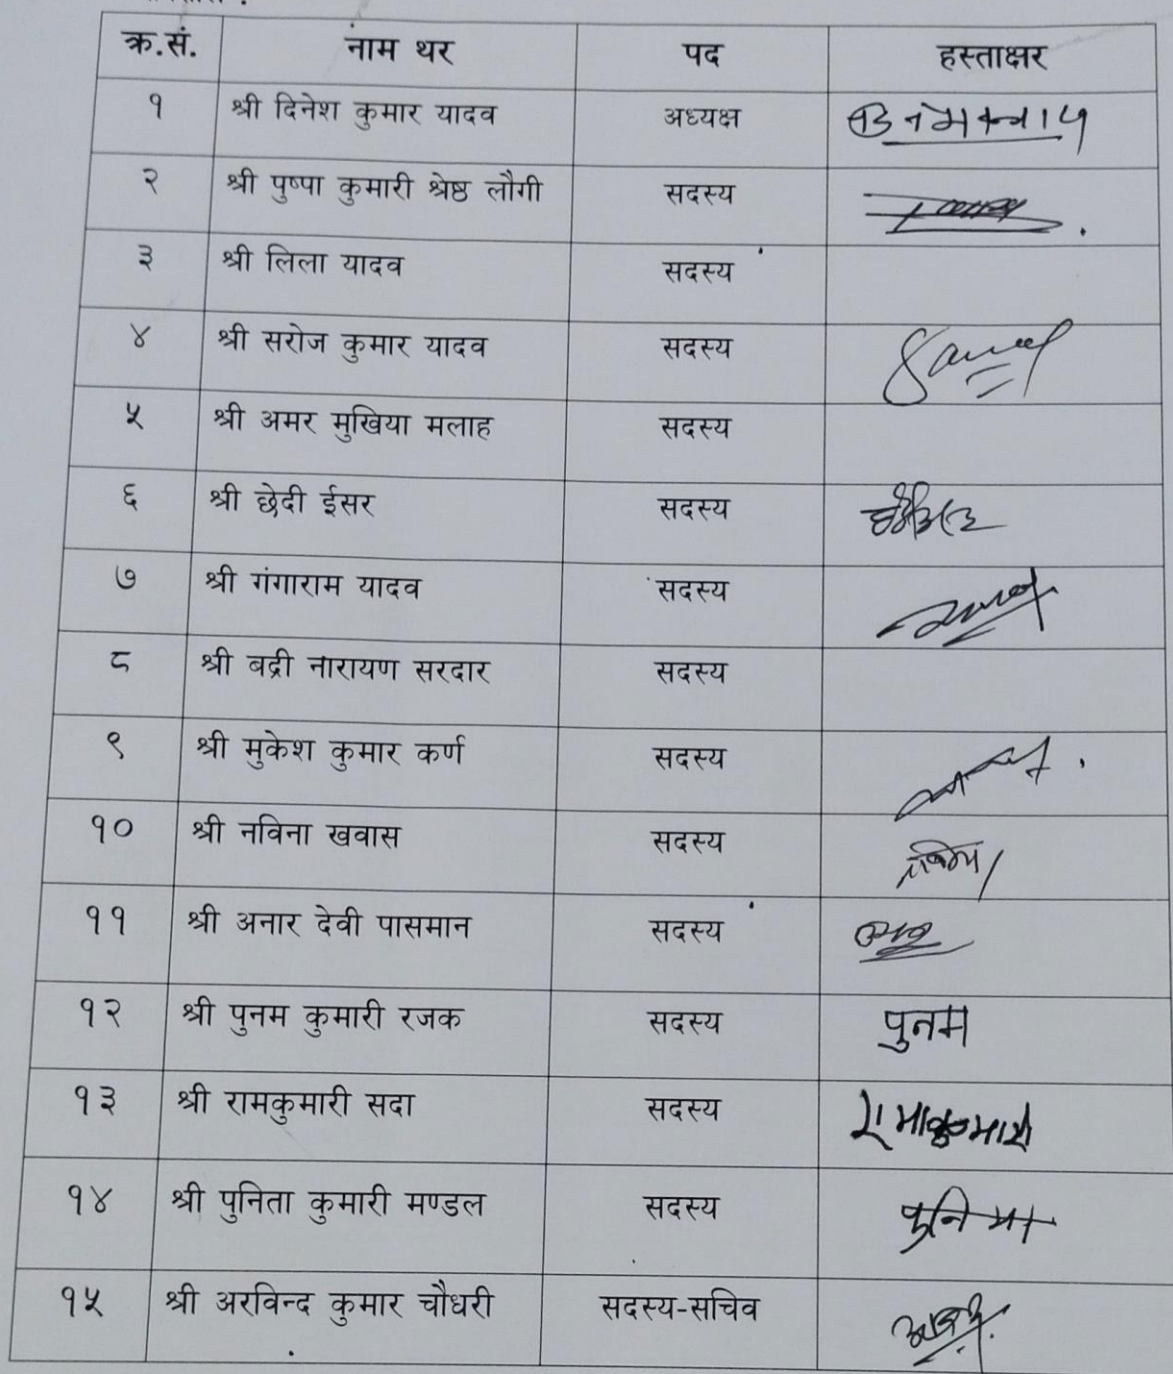 क्र.सं. नाम थर पद हस्ताक्षर
१ श्री दिनेश कुमार यादव अध्यक्ष
२ श्री पुष्पा कुमारी श्रेष्ठ लौगी सदस्य
३ श्री लिला यादव सदस्य
४ श्री सरोज कुमार यादव सदस्य
५ श्री अमर मुखिया मलाह सदस्य
६ श्री छेदी ईसर सदस्य
७ श्री गंगाराम यादव सदस्य
८ श्री बद्री नारायण सरदार सदस्य
९ श्री मुकेश कुमार कर्ण सदस्य
१० श्री नविना खवास सदस्य
११ श्री अनार देवी पासमान सदस्य
१२ श्री पुनम कुमारी रजक सदस्य पुनम
१३ श्री रामकुमारी सदा सदस्य
१४ श्री पुनिता कुमारी मण्डल सदस्य
१५ श्री अरविन्द कुमार चौधरी सदस्य-सचिव